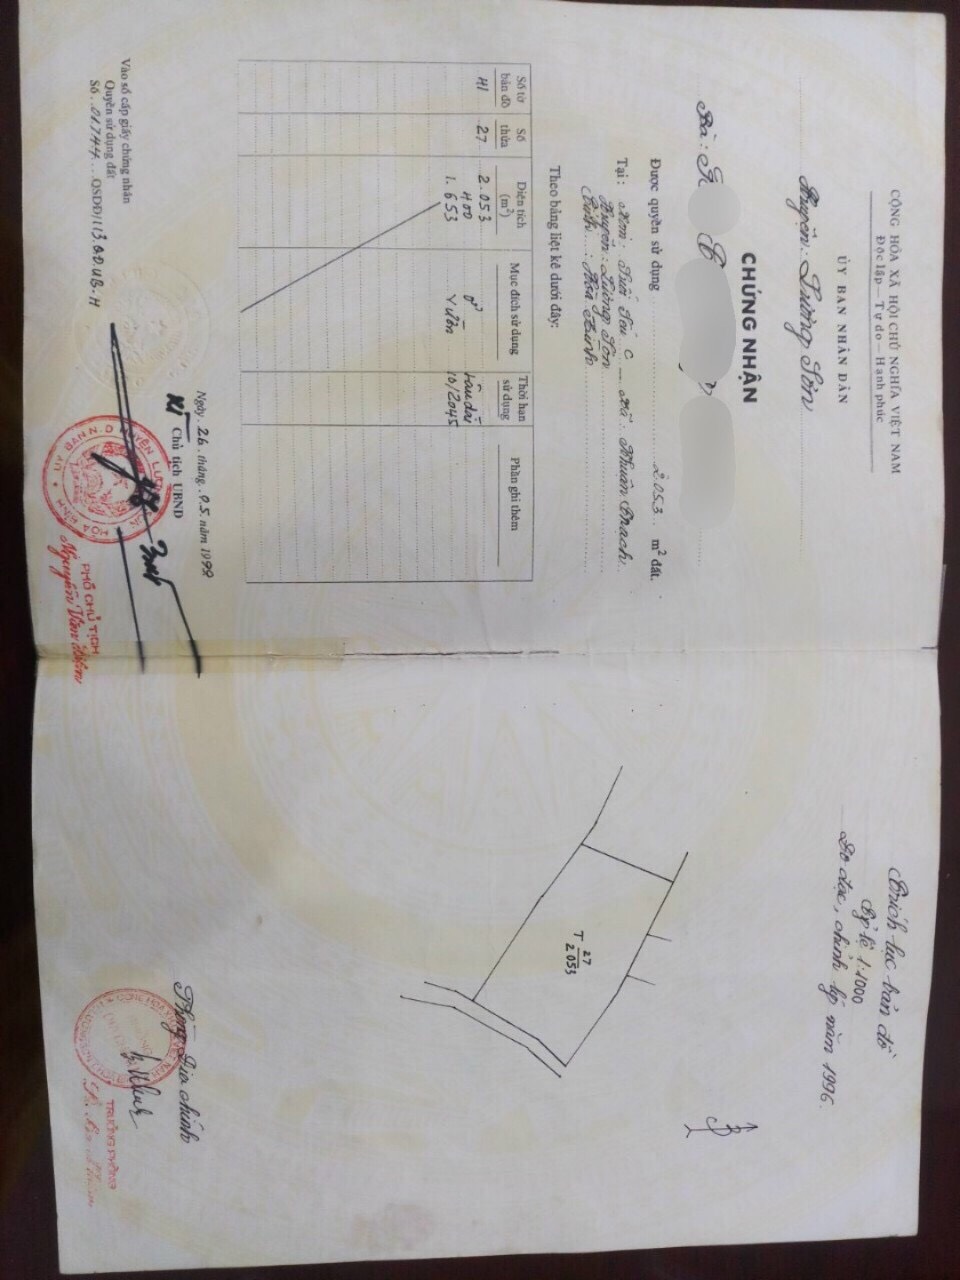 CỘNG HÒA XÃ HỘI CHỦ NGHĨA VIỆT NAM
Độc lập – Tự do – Hạnh phúc
ỦY BAN NHÂN DÂN
Huyện: Lương Sơn
CHỨNG NHẬN
Bà:
Được quyền sử dụng 2.053 m² đất.
Tại: Xóm: Suối Sếu C – Xã: Nhuận Trạch
Huyện: Lương Sơn
Tỉnh: Hòa Bình
Theo bảng liệt kê dưới đây:
Số tờ bản đồ Số thửa Diện tích (m²) Mục đích sử dụng Thời hạn sử dụng Phần ghi thêm
H1 27 2.053
400 ở Lâu dài
1.653 Vườn 10/2045
Ngày 26 tháng 05 năm 1998
KT Chủ tịch UBND
Vào sổ cấp giấy chứng nhận
Quyền sử dụng đất
Số 01744 QSDĐ/113 QĐ.UB.H
PHÓ CHỦ TỊCH
Nguyễn Văn
Trích lục bản đồ
Tỷ lệ 1:1000
Đo đạc, chỉnh lý năm 1996
B
T 27
2053
Phòng Địa chính
TRƯỞNG PHÒNG